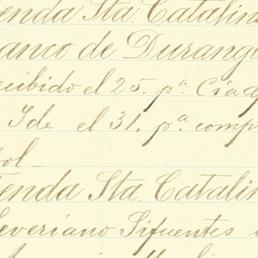 Tenda Sta. Catalin
anco de Durang
ecibido el 25. pa. Ciag
Ide el 31. pa. comp
ol
Tenda Sta. Catalin
everiano Sifuentes